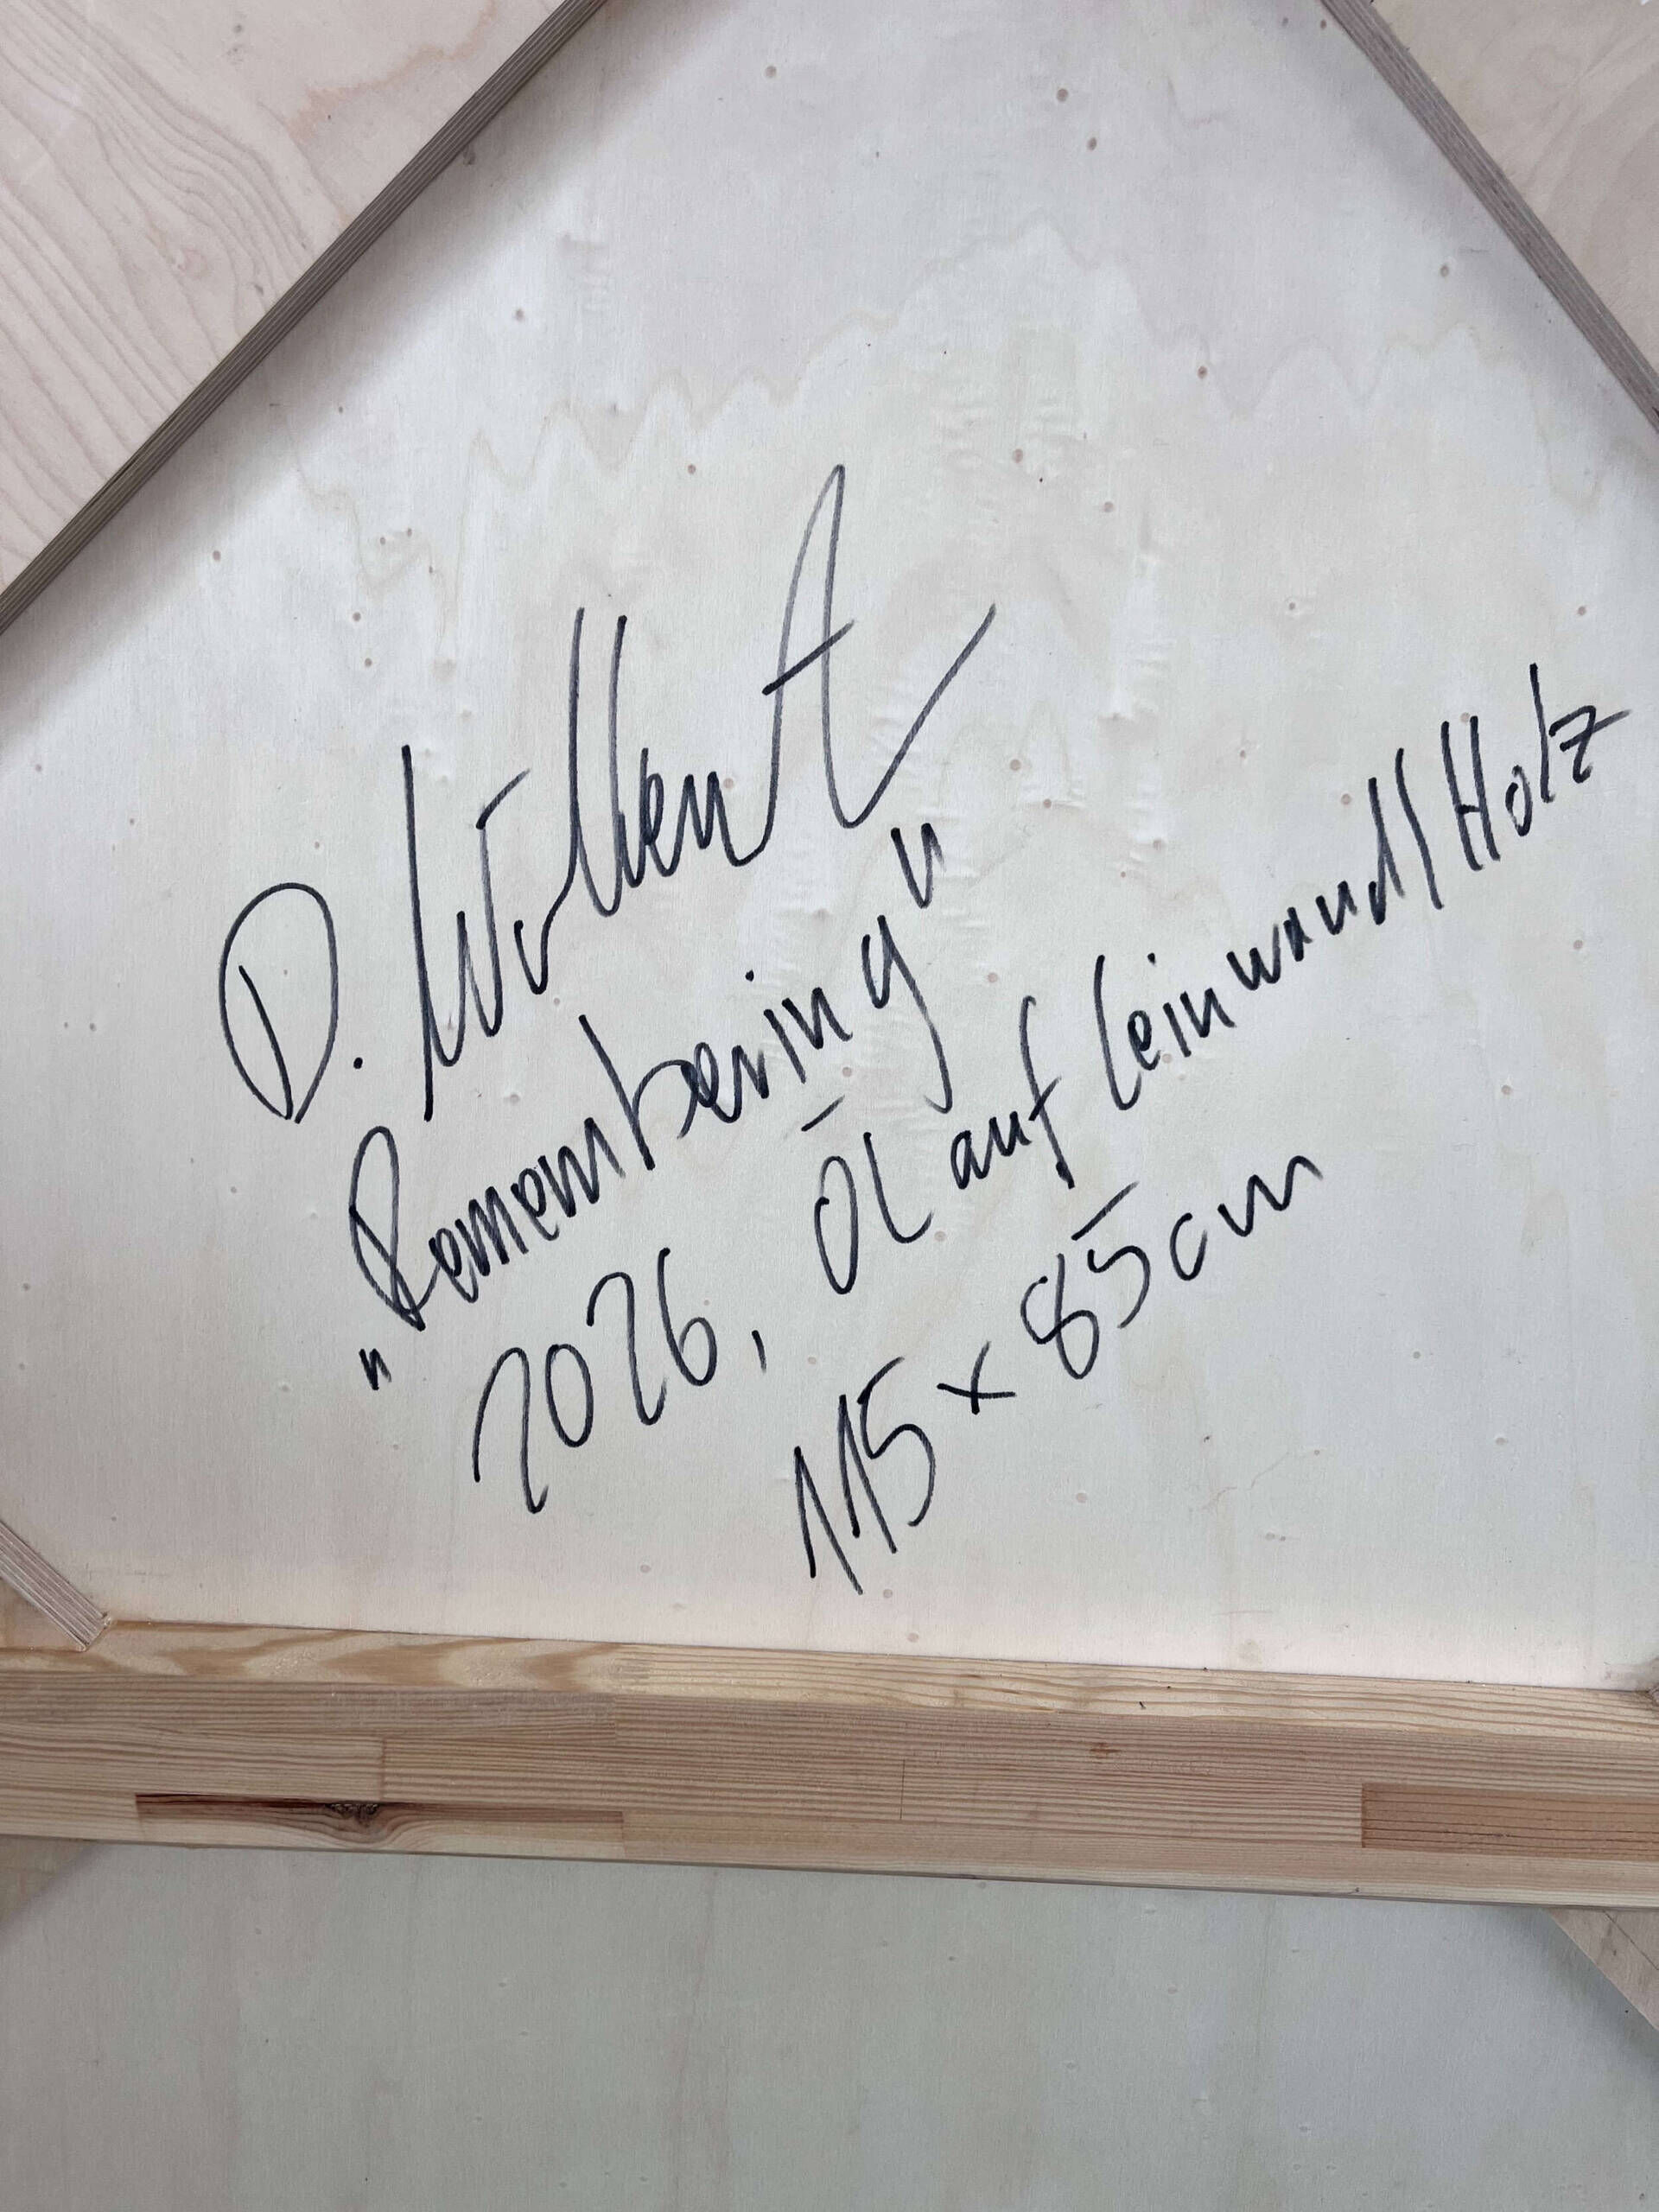 D. Wolkenst
„Remembering"
2026, Öl auf Leinwand/Holz
115 x 85cm